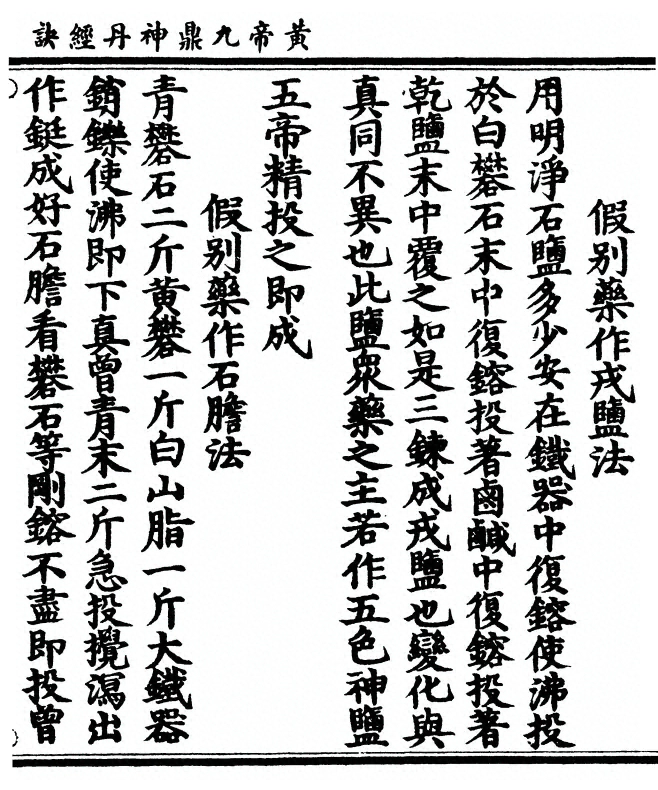 黃帝九鼎神丹經訣
假别藥作戎鹽法
用明淨石鹽多少安在鐵器中復鎔使沸投
於白礬石末中復鎔投著鹵鹹中復鎔投著
乾鹽末中覆之如是三鍊成戎鹽也變化與
真同不異也此鹽眾藥之主若作五色神鹽
五帝精投之即成
假别藥作石膽法
青礬石二斤黃礬一斤白山脂一斤大鐵器
銷鑠使沸即下真曾青末二斤急投攪瀉出
作鋌成好石膽看礬石等剛鎔不盡即投曾